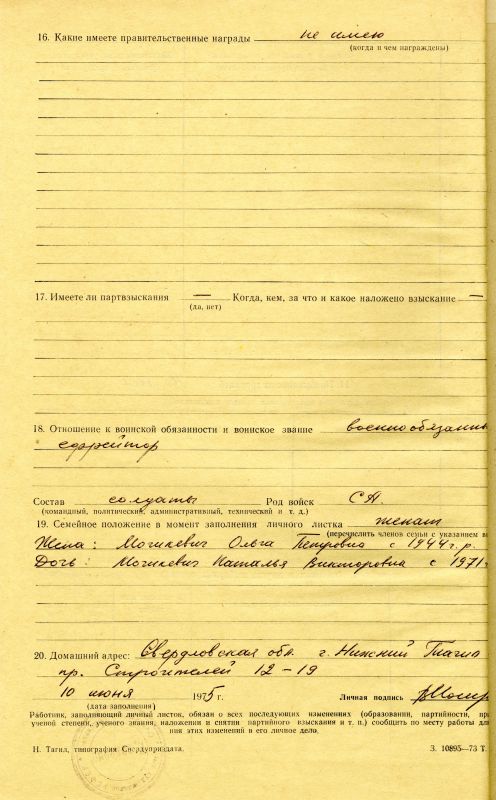 16. Какие имеете правительственные награды не имею
(когда и чем награждены)
17. Имеете ли партвзыскания — Когда, кем, за что и какое наложено взыскание —
(да, нет)
18. Отношение к воинской обязанности и воинское звание военнообязанны
ефрейтор
Состав солдаты Род войск СА
(командный, политический, административный, технический и т. д.)
19. Семейное положение в момент заполнения личного листка женат
(перечислить членов семьи с указанием во
Жена: Ольга Петровна с 1944 г. р.
Дочь: Наталья Викторовна с 1971 г
20. Домашний адрес: Свердловская обл. г. Нижний Тагил
пр. Строителей 12-19
10 июня 1975 г. Личная подпись
(дата заполнения)
Работник, заполняющий личный листок, обязан о всех последующих изменениях (образовании, партийности, при
ученой степени, ученого звания, наложении и снятии партийного взыскания и т. п.) сообщить по месту работы для
ния этих изменений в его личное дело.
Н. Тагил, типография Свердуприздата. З. 10895—73 Т.